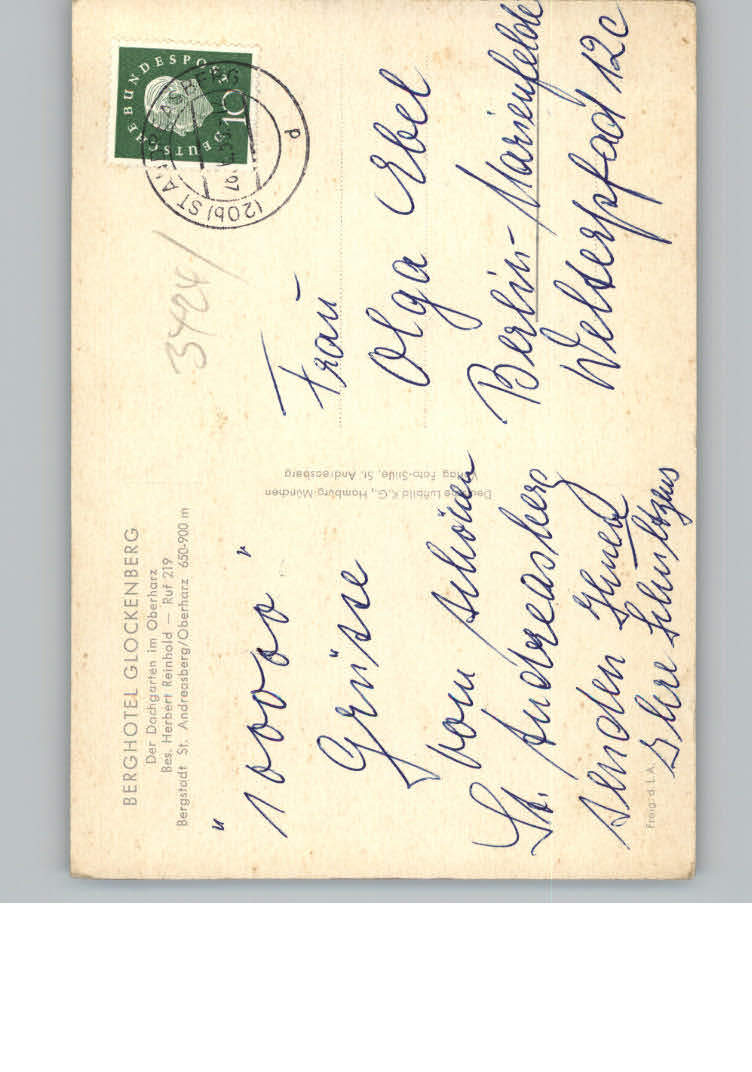 BERGHOTEL GLOCKENBERG
Der Dachgarten im Oberharz
Bes. Herbert Reinhold — Ruf 219
Bergstadt St. Andreasberg/Oberharz 650-900 m
"10000"
Grüsse
vom schönen
St. Andreasberg
senden Ihnen
Ihre
Freig. d. L. A.
Deutsche Luftbild K.G., Hamburg-München
Verlag Foto-Stille, St. Andreasberg
DEUTSCHE BUNDESPOST
10
(20b) ST ANDREASBERG
p
3424/
Frau
Olga Ebel
Berlin-Marienfelde
Welserpfad 12c